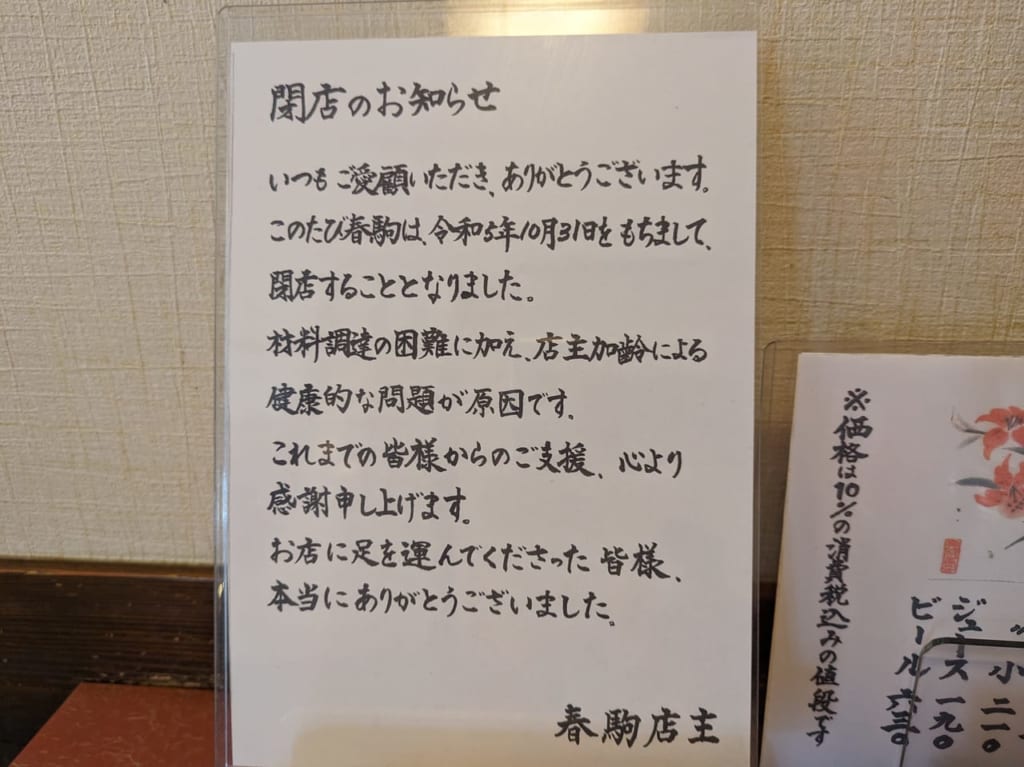 閉店のお知らせ
いつもご愛顧いただき、ありがとうございます。
このたび春駒は、令和5年10月31日をもちまして、
閉店することとなりました。
材料調達の困難に加え、店主加齢による
健康的な問題が原因です。
これまでの皆様からのご支援、心より
感謝申し上げます。
お店に足を運んでくださった皆様、
本当にありがとうございました。
春駒店主
小 二一〇
ジュース 一九〇
ビール 六三〇
※価格は10%の消費税込みの値段です